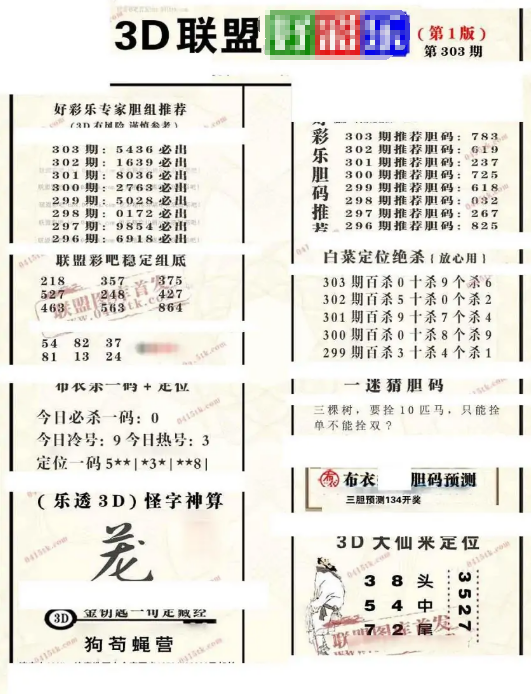 3D联盟好彩乐
(第1版)
第303期
好彩乐专家胆组推荐
(3D有风险 谨慎参考)
303期: 5436 必出
302期: 1639 必出
301期: 8036 必出
300期: 2763 必出
299期: 5028 必出
298期: 0172 必出
297期: 9854 必出
296期: 6918 必出
联盟彩吧稳定组底
218 357 375
527 248 427
463 563 864
54 82 37
81 13 24
布衣杀一码+定位
今日必杀一码: 0
今日冷号: 9 今日热号: 3
定位一码 5**|*3*|**8|
(乐透3D) 怪字神算
3D 金钥匙一句定藏经
狗苟蝇营
好彩乐胆码推荐
303期推荐胆码: 783
302期推荐胆码: 619
301期推荐胆码: 237
300期推荐胆码: 725
299期推荐胆码: 618
298期推荐胆码: 032
297期推荐胆码: 267
296期推荐胆码: 825
白菜定位绝杀{放心用}
303期百杀0十杀9个杀6
302期百杀5十杀0个杀2
301期百杀9十杀7个杀4
300期百杀0十杀8个杀9
299期百杀3十杀4个杀1
一迷猜胆码
三棵树，要拴10匹马，只能拴
单不能拴双？
布衣 胆码预测
三胆预测134开奖
3D大仙来定位
3 8 头
5 4 中
7 2 尾
3527